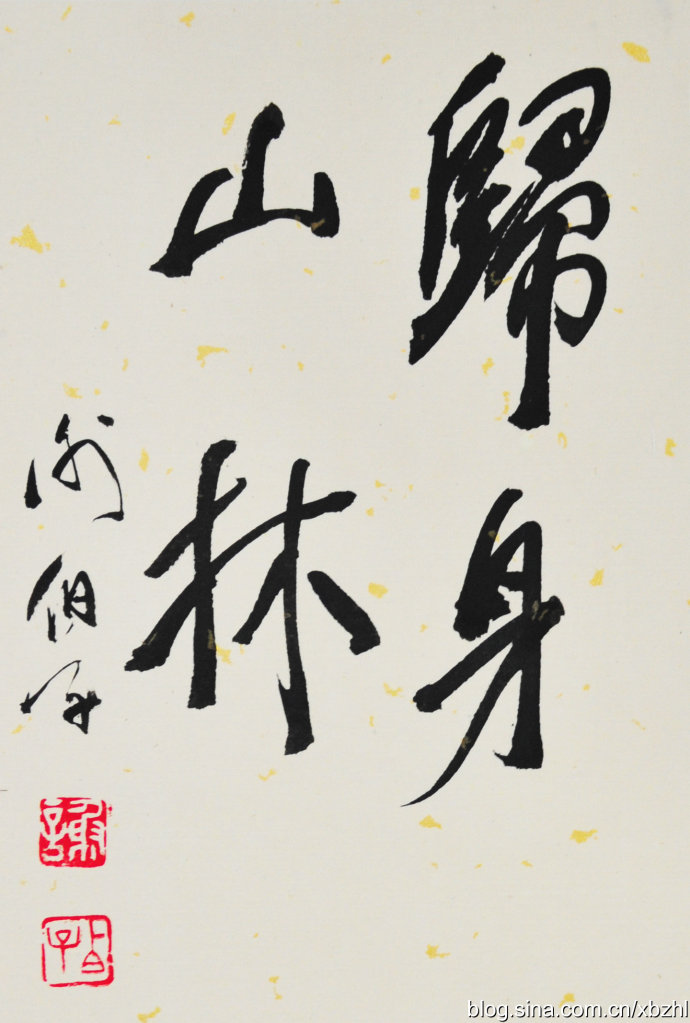 歸身
山林
謝伯子
謝
伯子
blog.sina.com.cn/xbzhl